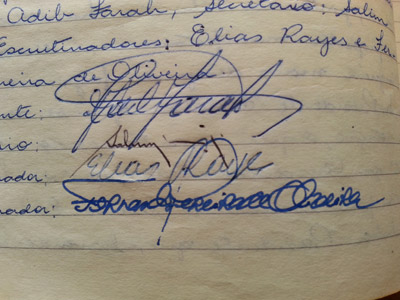 Adib Farah, Secretário: Salim
Escrutinadores: Elias Rayes e Fer
reira de Oliveira
nte: Adib Farah
rio: Salim
nador: Elias Rayes
nador: Fernando Pereira de Oliveira